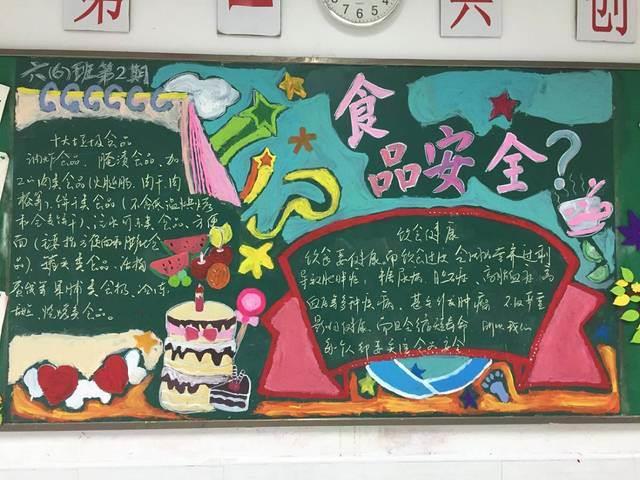 共创
12 1 2 3 4 5 6 7 8
六(6)班第2期
食品安全?
十大垃圾食品
油炸食品、腌渍食品、加
工肉类食品(火腿肠、肉干、肉
松等)、饼干类食品(不含低温烘烤
和全麦饼干)、汽水可乐类食品、方便
面(主要指方便面和膨化食
品)、罐头类食品、
果脯类食品、冷冻
烧烤类食品。
饮食健康
饮食要健康,如饮食过度会因为营养过剩
导致肥胖症、糖尿病、高脂血症、高
血压等多种疾病、甚至引发肿瘤。不仅严重
影响健康,而且会缩短寿命